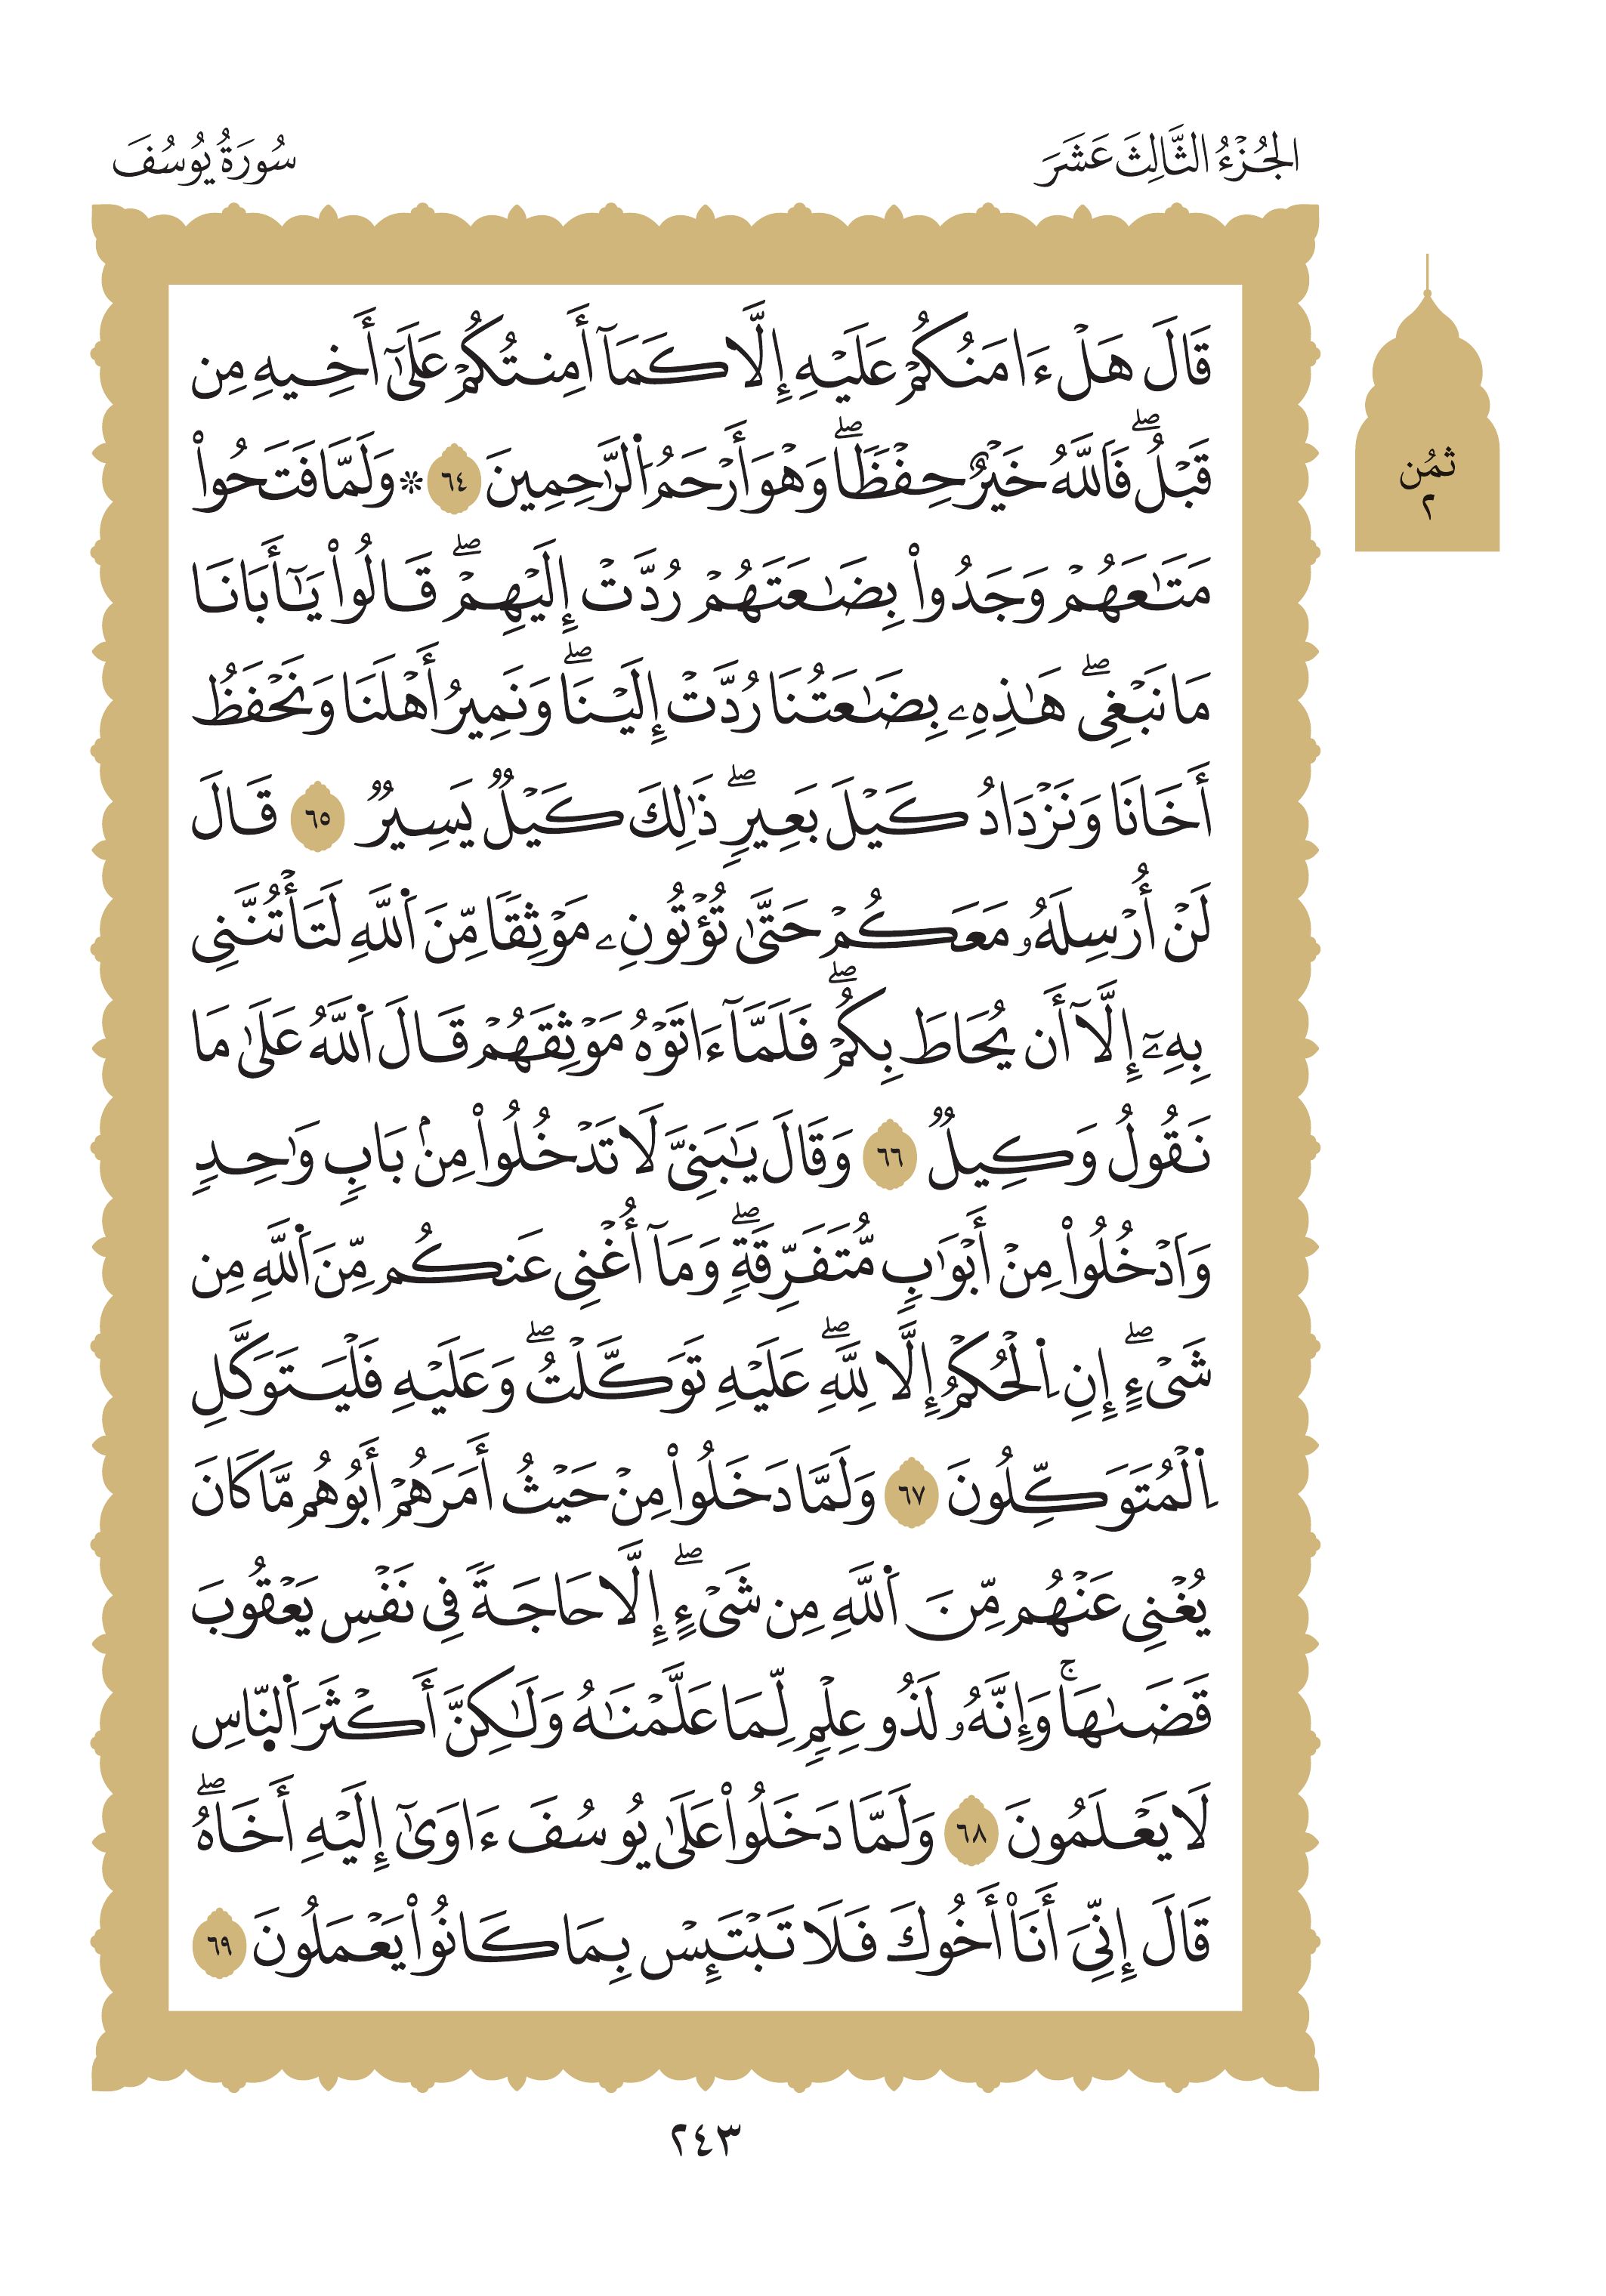 الجُزْءُ الثَّالِثَ عَشَرَ
سُورَةُ يُوسُفَ
ثمُن
٢
قَالَ هَلْ ءَامَنُكُمْ عَلَيْهِ إِلَّا كَمَآ أَمِنتُكُمْ عَلَىٰٓ أَخِيهِ مِن
قَبْلُۖ فَاَللَّهُ خَيْرٌ حِفْظَاۖ وَهْوَ أَرْحَمُ اُ۬لرَّٰحِمِينَ ٦٤ ۞ وَلَمَّا فَتَحُواْ
مَتَٰعَهُمْ وَجَدُواْ بِضَٰعَتَهُمْ رُدَّتْ إِلَيْهِمْۖ قَالُواْ يَٰٓأَبَانَا
مَا نَبْغِےۖ هَٰذِهِۦ بِضَٰعَتُنَا رُدَّتْ إِلَيْنَاۖ وَنَمِيرُ أَهْلَنَا وَنَحْفَظُ
أَخَانَا وَنَزْدَادُ كَيْلَ بَعِيرٖۖ ذَٰلِكَ كَيْلٞ يَسِيرٞ ٦٥ قَالَ
لَنْ أُرْسِلَهُۥ مَعَكُمْ حَتَّىٰ تُؤْتُونِۦ مَوْثِقٗا مِّنَ اَ۬للَّهِ لَتَأْتُنَّنِى
بِهِۦٓ إِلَّآ أَن يُحَاطَ بِكُمْۖ فَلَمَّآ ءَاتَوْهُ مَوْثِقَهُمْ قَالَ اَ۬للَّهُ عَلَىٰ مَا
نَقُولُ وَكِيلٞ ٦٦ وَقَالَ يَٰبَنِىَّ لَا تَدْخُلُواْ مِنۢ بَابٖ وَٰحِدٖ
وَاَدْخُلُواْ مِنْ أَبْوَٰبٖ مُّتَفَرِّقَةٖۖ وَمَآ أُغْنِى عَنكُم مِّنَ اَ۬للَّهِ مِن
شَىْءٍۖ إِنِ اِ۬لْحُكْمُ إِلَّا لِلَّهِۖ عَلَيْهِ تَوَكَّلْتُۖ وَعَلَيْهِ فَلْيَتَوَكَّلِ
اِ۬لْمُتَوَكِّلُونَ ٦٧ وَلَمَّا دَخَلُواْ مِنْ حَيْثُ أَمَرَهُمْ أَبُوهُم مَّا كَانَ
يُغْنِى عَنْهُم مِّنَ اَ۬للَّهِ مِن شَىْءٍۖ إِلَّا حَاجَةٗ فِى نَفْسِ يَعْقُوبَ
قَضَىٰهَاۚ وَإِنَّهُۥ لَذُو عِلْمٖ لِّمَا عَلَّمْنَٰهُ وَلَٰكِنَّ أَكْثَرَ اَ۬لنّاسِ
لَا يَعْلَمُونَ ٦٨ وَلَمَّا دَخَلُواْ عَلَىٰ يُوسُفَ ءَاوَىٰٓ إِلَيْهِ أَخَاهُۖ
قَالَ إِنِّىَ أَنَا۠ أَخُوكَ فَلَا تَبْتَئِسْ بِمَا كَانُواْ يَعْمَلُونَ ٦٩
٢٤٣